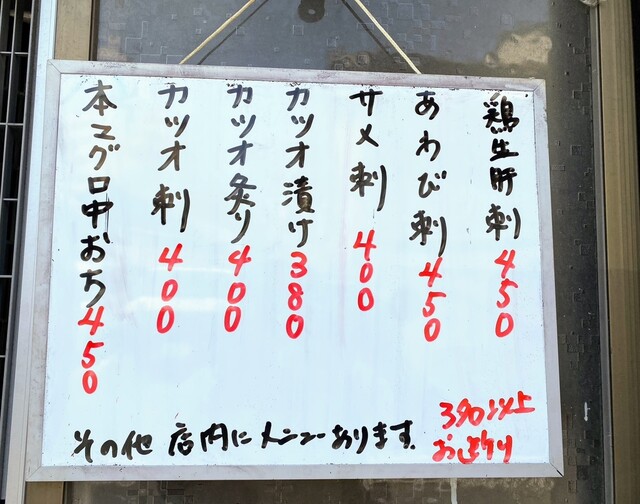 鶏生肝刺 450
あわび刺 450
サメ刺 400
カツオ漬け 380
カツオ炙り 400
カツオ刺 400
本マグロ中おち 450
その他 店内にメニューあります。